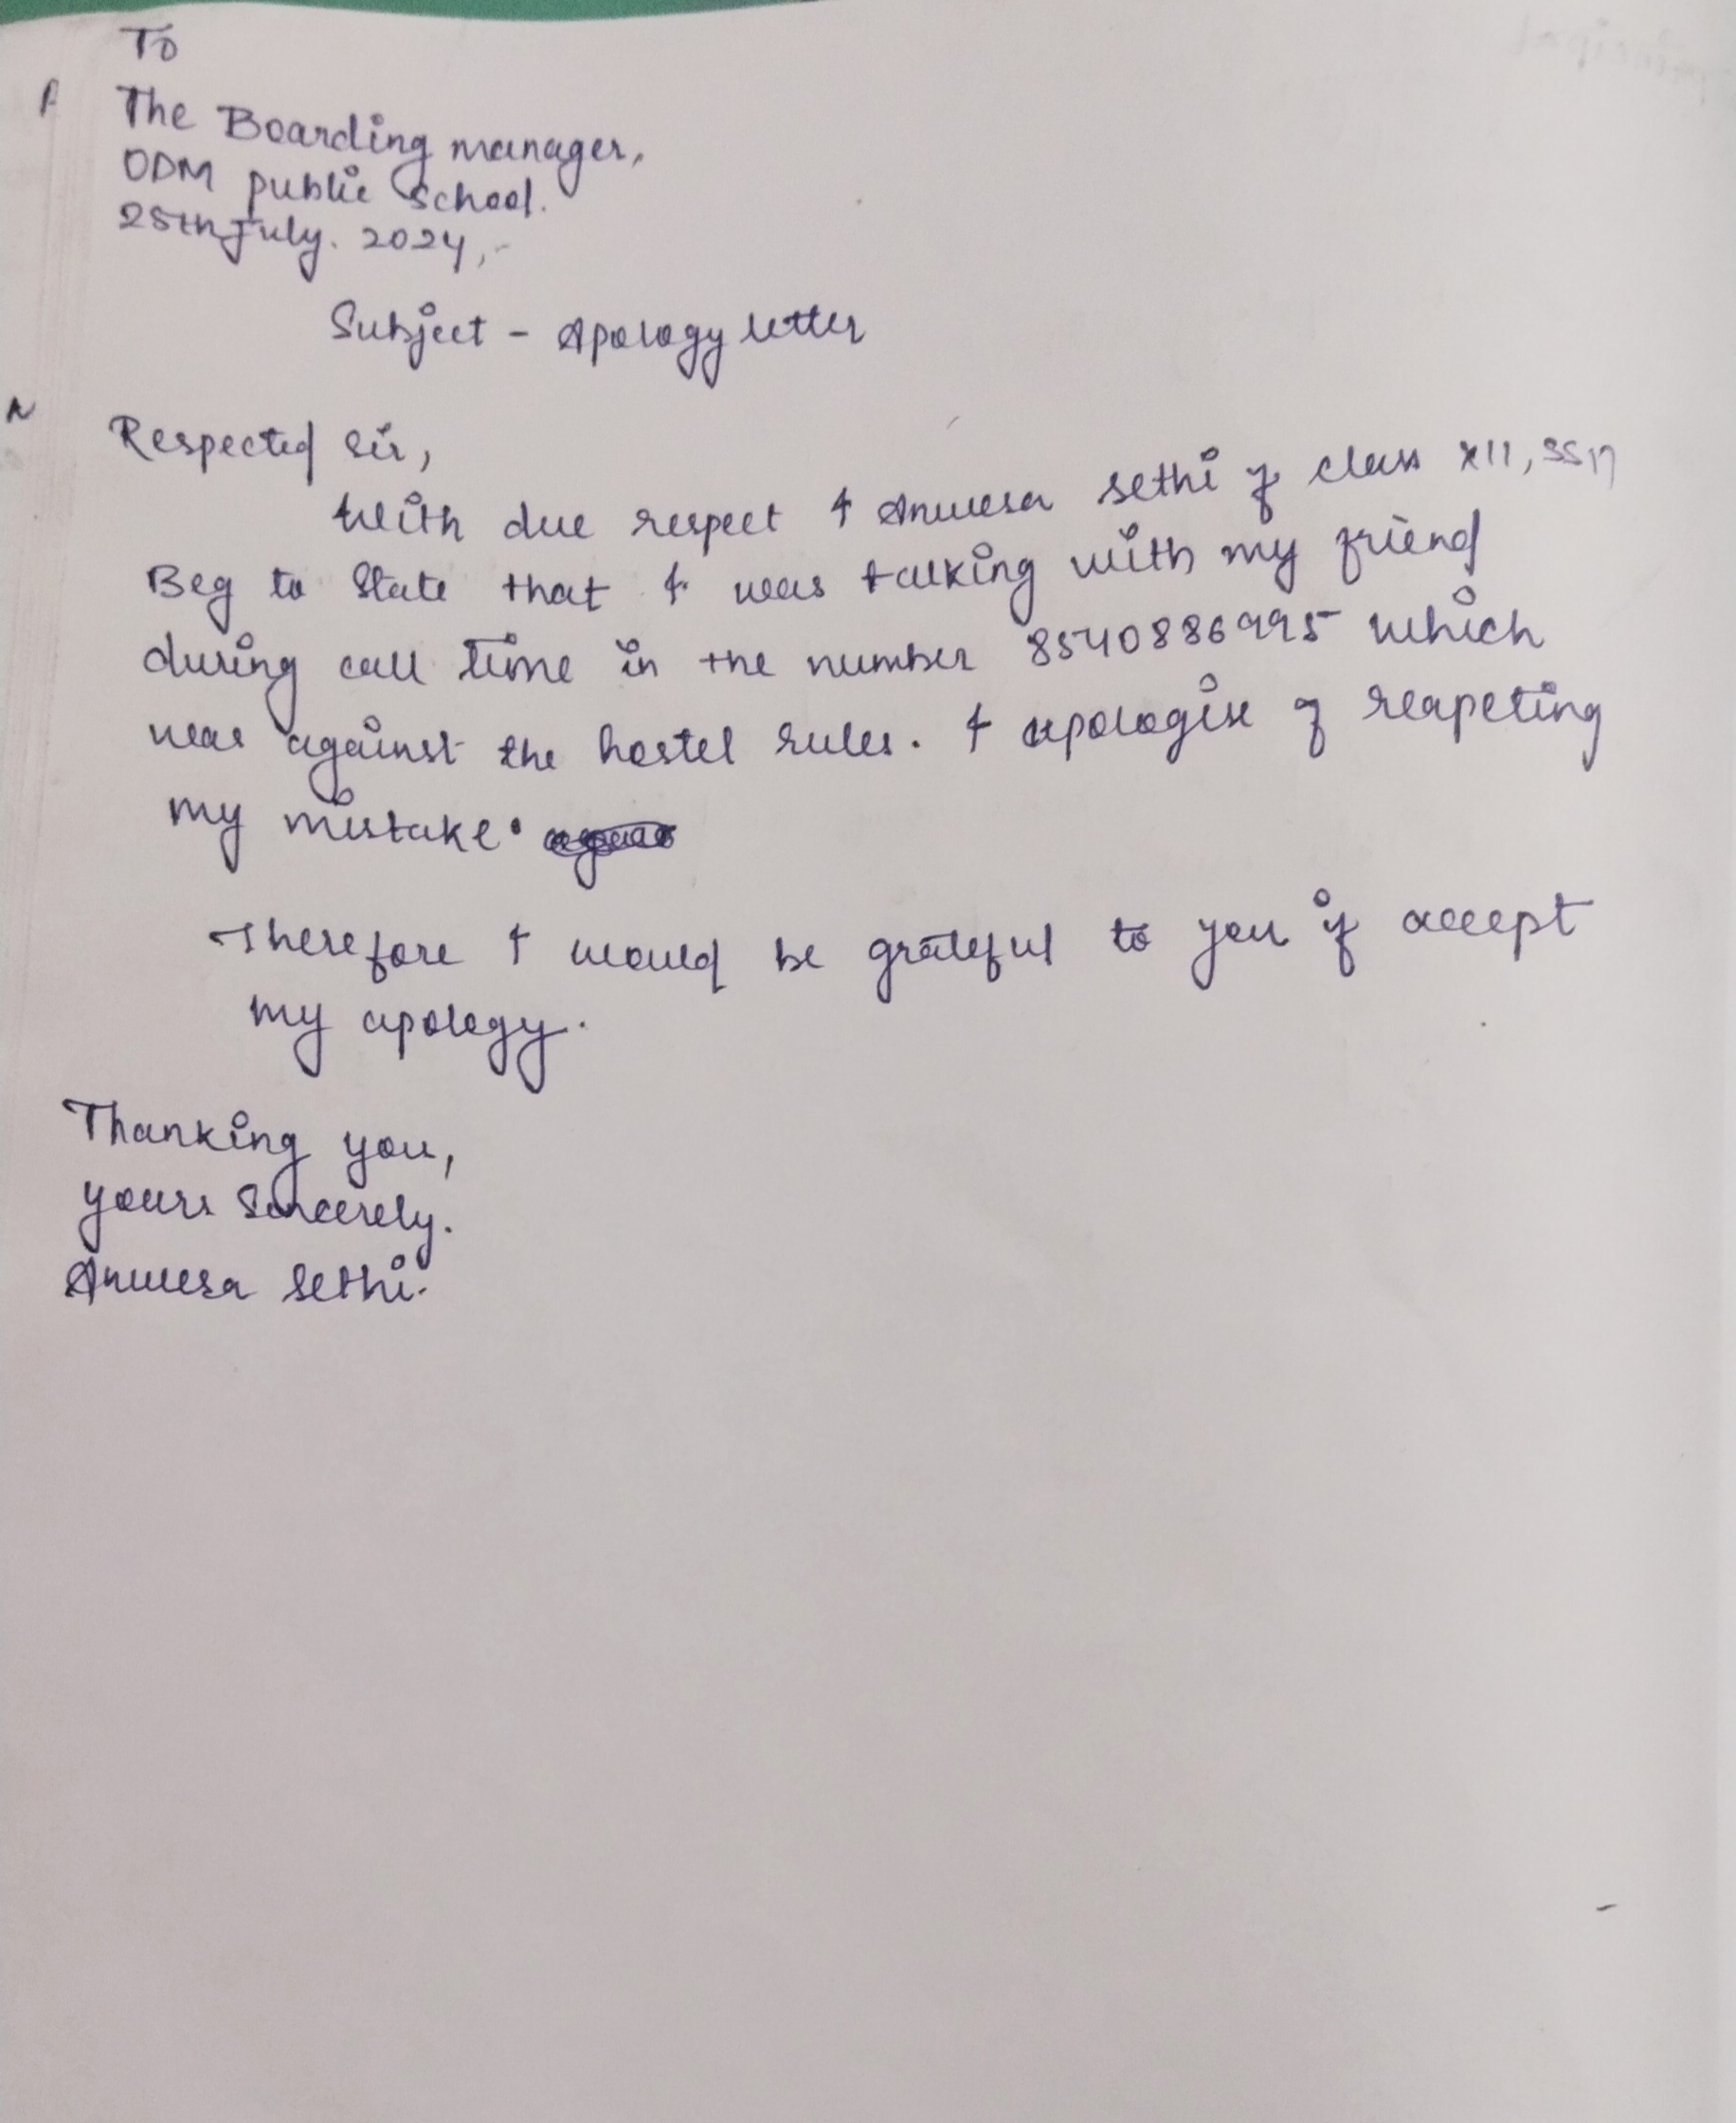 To
The Boarding manager,
ODM public School.
25th July. 2024,
Subject - Apology letter
Respected Sir,
With due respect I Anwesa Sethi of class XII, SS17
Beg to State that I was talking with my friend
during call time in the number 8540886995 which
was against the hostel rules. I apologise of reapeting
my mistake.
Therefore I would be grateful to you if accept
my apology.
Thanking you,
yours Sincerely.
Anwesa Sethi.